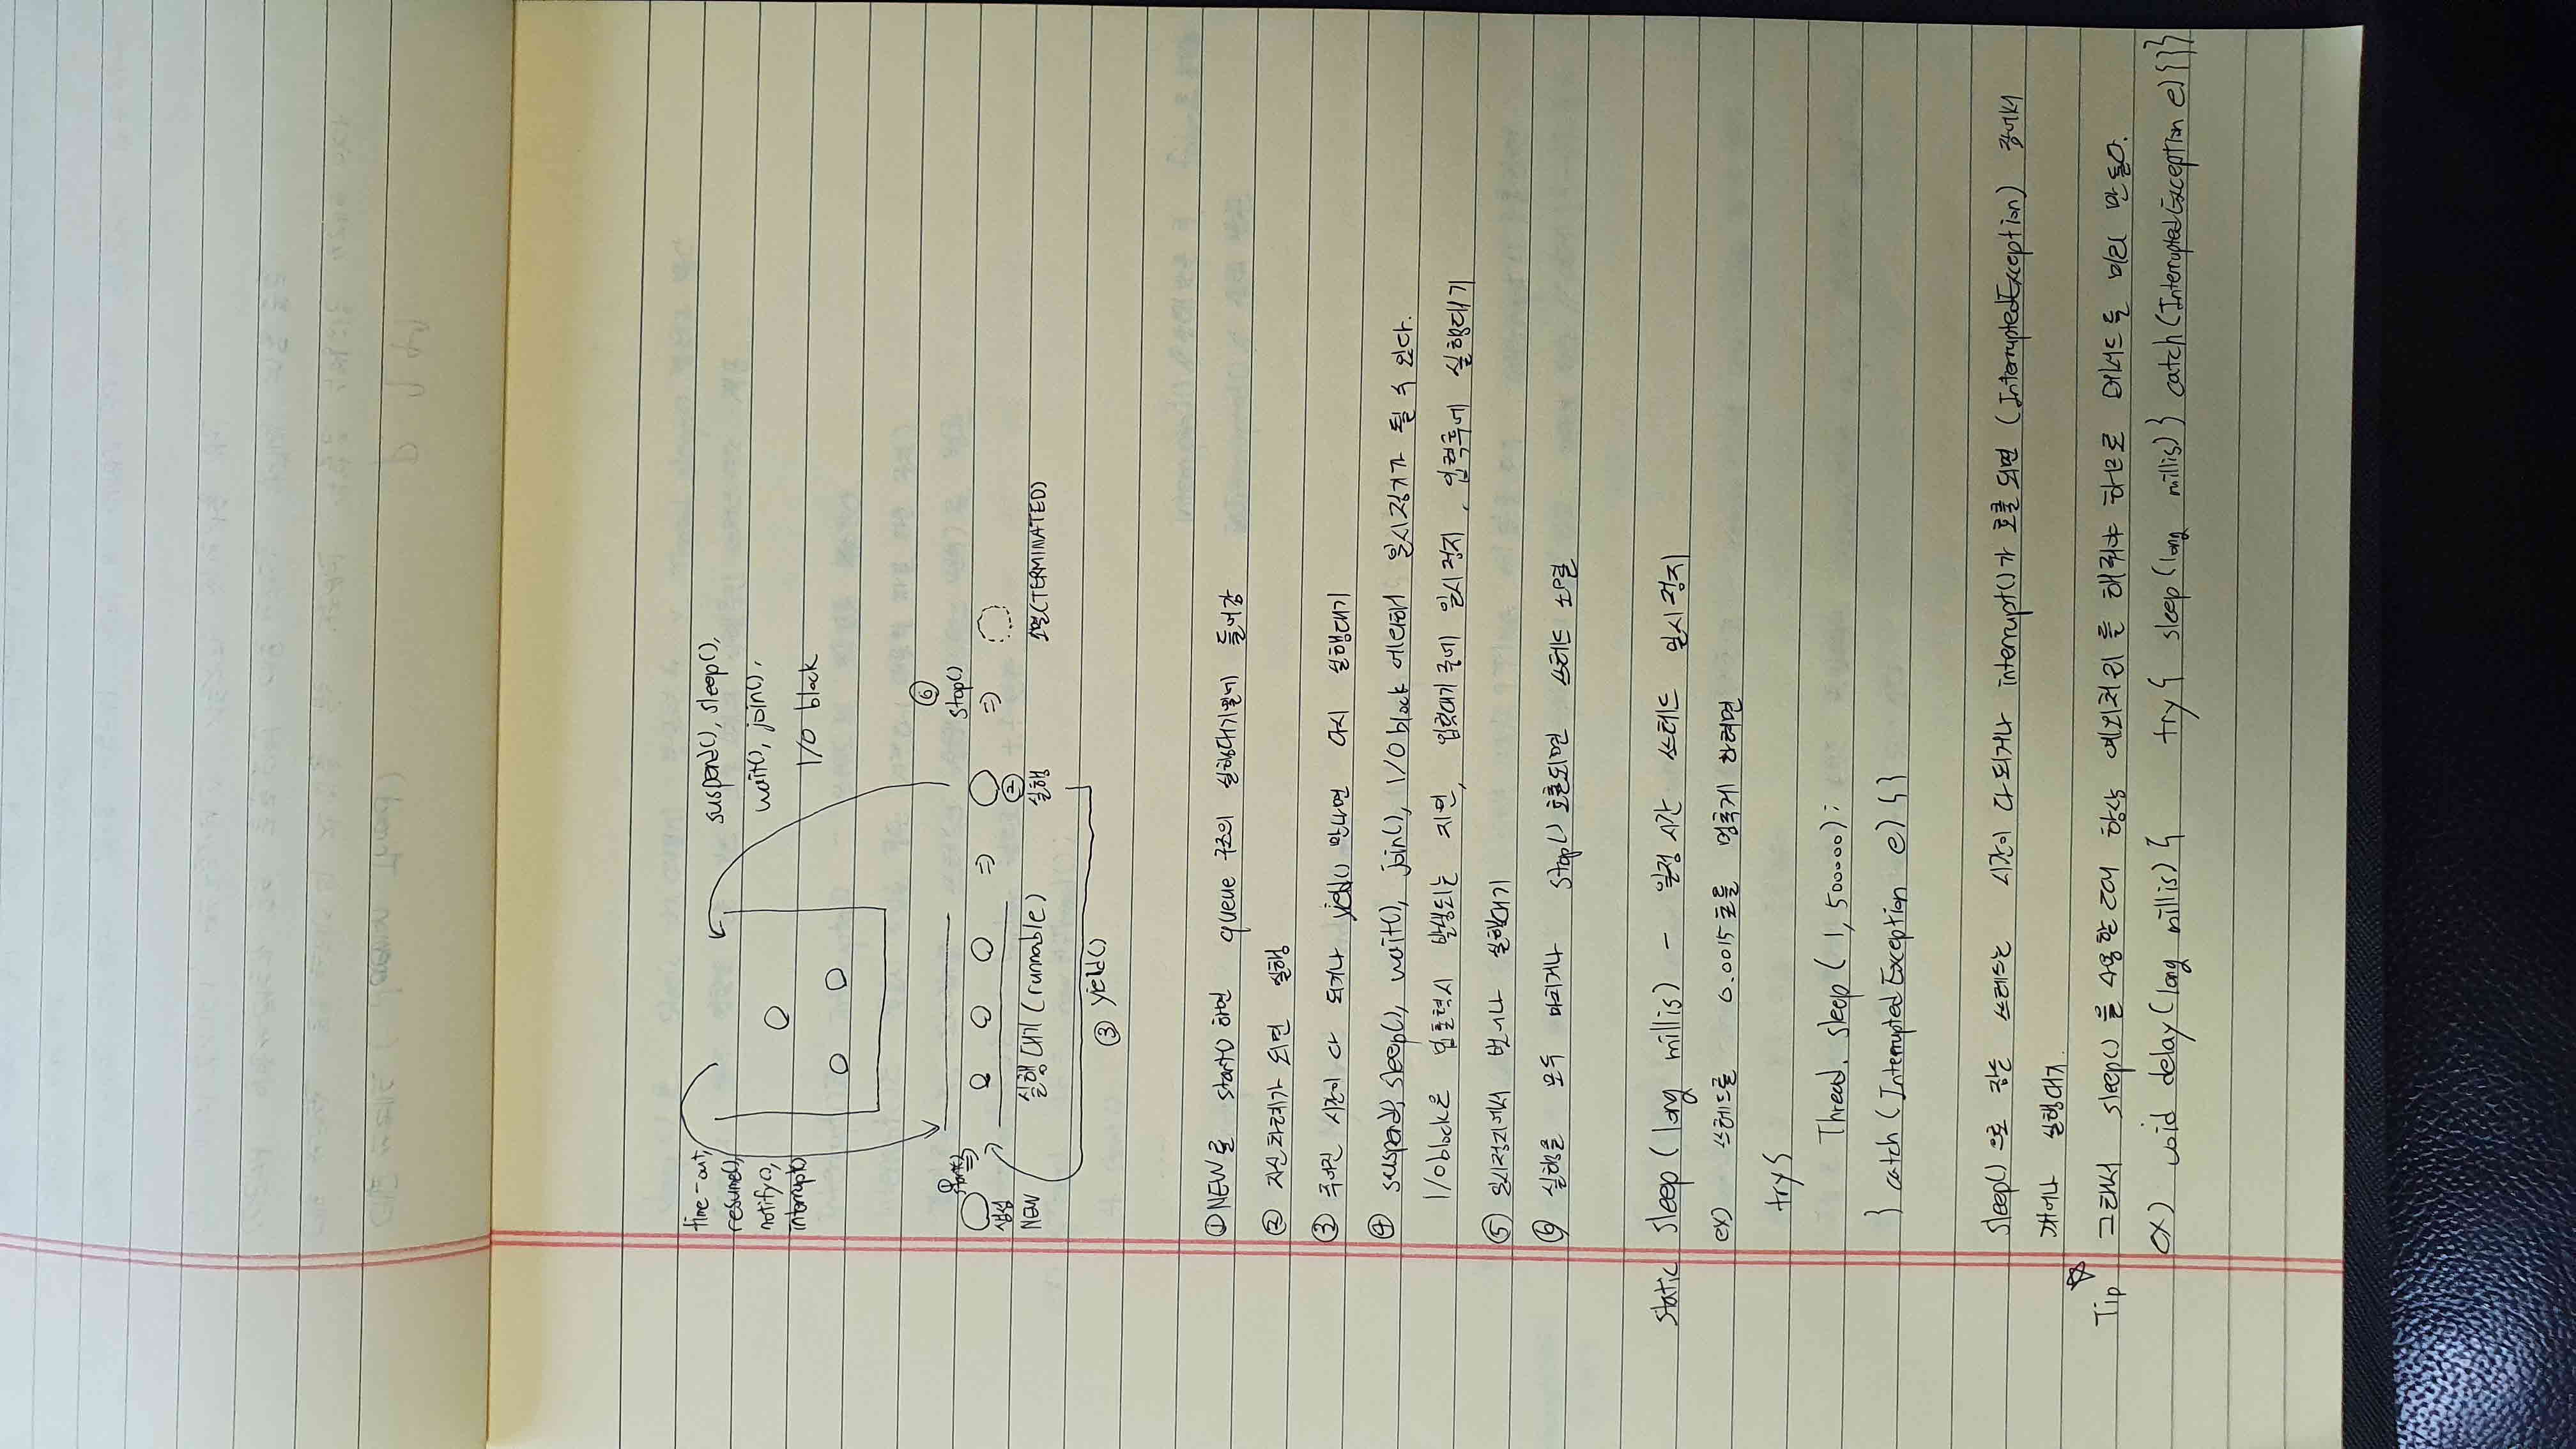 time-out,
resume(),
notify(),
interrupt()
suspend(), sleep(),
wait(), join(),
I/O block
① start()
생성
NEW
실행대기(runnable)
②
실행
⑥
stop()
소멸(TERMINATED)
③ yield()
① NEW로 start() 하면 queue 구조의 실행대기열에 들어감
② 자신차례가 되면 실행
③ 주어진 시간이 다 되거나 yield() 만나면 다시 실행대기
④ suspend(), sleep(), wait(), join(), I/O block 에의해 일시정지가 될 수 있다.
I/O block은 입출력시 발생되는 지연, 입력대기 중에 일시정지, 입력후에 실행대기
⑤ 일시정지에서 벗어나 실행대기
⑥ 실행을 모두 마치거나 stop() 호출되면 쓰레드 소멸
static sleep(long millis) - 일정 시간 쓰레드 일시정지
ex) 쓰레드를 0.0015초를 멈추게 하려면
try{
Thread.sleep(1, 500000);
} catch(InterruptedException e){}
sleep()으로 잠든 쓰레드는 시간이 다 되거나 interrupt()가 호출되면 (InterruptedException) 잠에서
깨어나 실행대기.
Tip 그래서 sleep()을 사용할때 항상 예외처리를 해줘야 하므로 메서드를 미리 만들어.
ex) void delay(long millis){ try{ sleep(long millis)} catch(InterruptedException e){}}